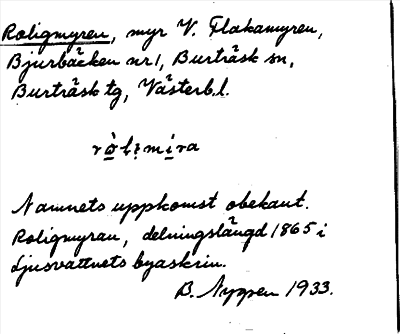 Roligmyren, myr V. Flakamyren,
Bjurbäcken nr 1, Burträsk sn,
Burträsk tg, Västerb. l.
Namnets uppkomst obekant.
Roligmyran, delningslängd 1865 i
Ljusvattnets byaskrin.
B. Nyppen 1933.